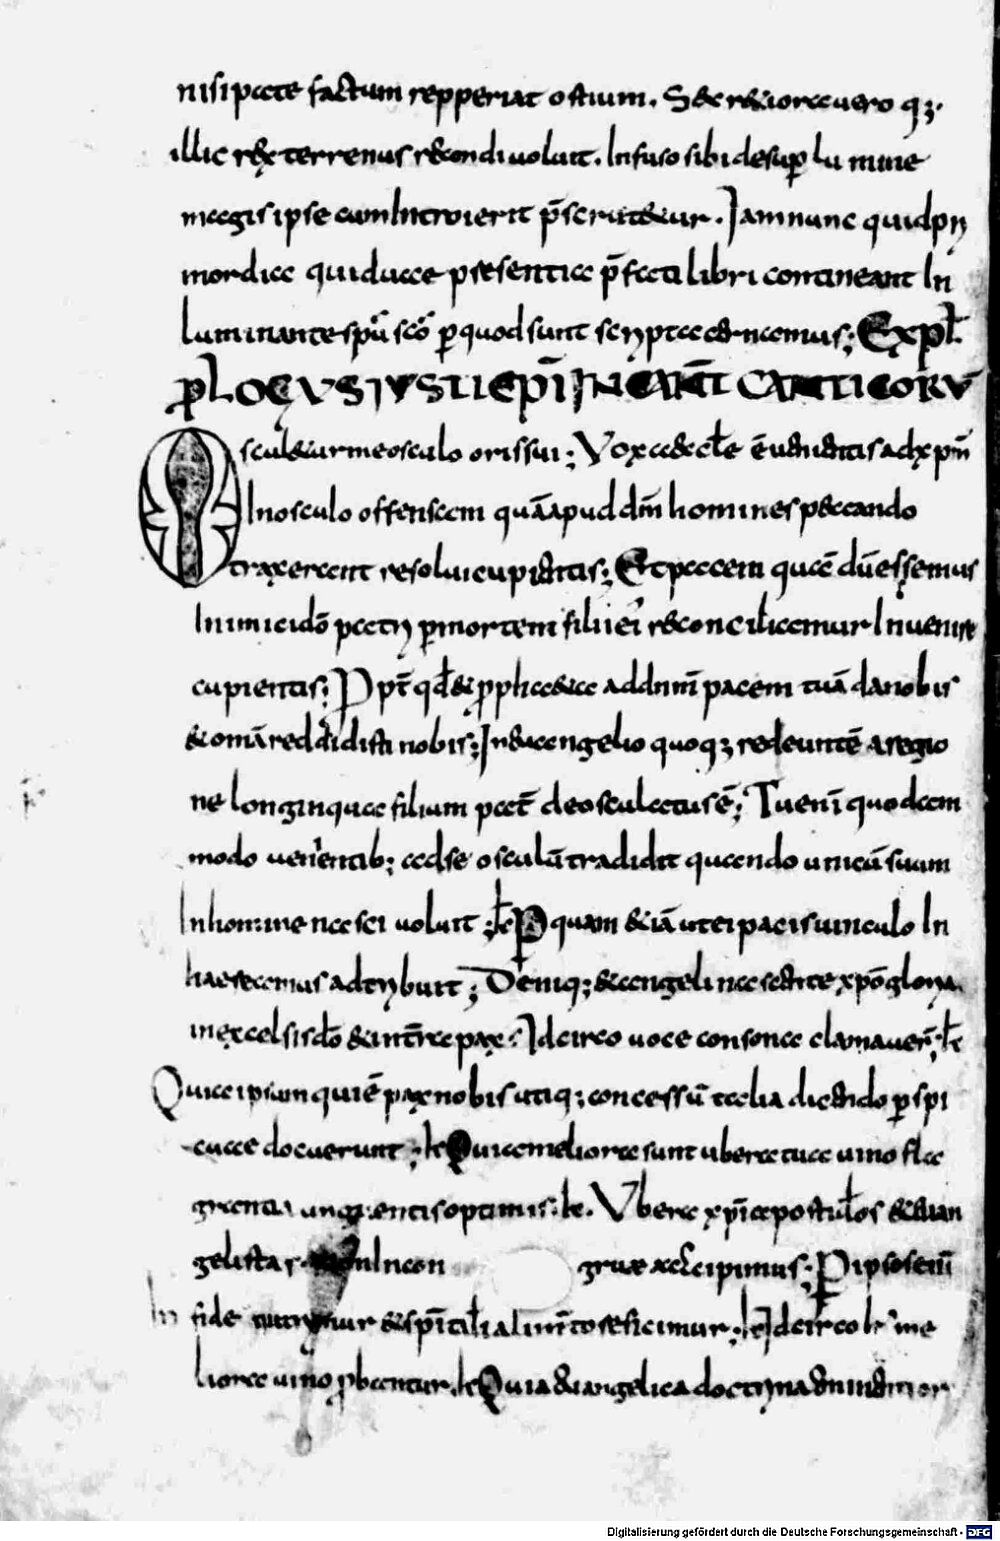 nisi parte factum repperiat ostium. Secretiora uero q;
illic rex terrenus recondi uoluit. Infuso sibi desup lumine
magis ipse cum introierit p̄scrutetur. Iam nunc quid pri
mordia quidue psesentia p̄fati libri contineant In
luminante spū sc̄o p quod sunt scrypta cernamus; Expl
PLOCVS IVSTI EPI INCANT CANTICORV̄
Osculetur me osculo oris sui; Vox aeccle ē uenientis ad xpm̄
In osculo offensam quā apud dm̄ homines peccando
traxerant resolui cupientis; Et pacem quā dū essemus
Inimici dō patri p mortem filii ei reconciliamur Inuenire
cupientis; Ppt̄ qd & propheta addnm̄ pacem tuā da nobis
& omā redddidisti nobis; In euangelio quoq; redeuntē a regio
ne longinqua filium pat̄ deosculatus ē; Tuenī quodam
modo uenientib; ad se osculū tradidit quando unicū suum
In homine nasci uoluit;
haeseremus adtrybuit; Deniq; & angeli nascente xpō gloria
in excelsis dō & in tr̄ra pax; Idcirco uoce consona clamauer̄;
Quia ipsum qui ē pax nobis utiq; concessū talia dicendo pspi
cuae docuerunt; Quia meliora sunt ubera tua uino fla
grantia unguentis optimis; Vbera xpī apostulos & euan
gelistas con grue accipimus; P ipsos enī
In fide nutrymur & spītali alimn̄to reficimur; Idcirco me
liora uino pbantur. Quia euangelica doctryna
Digitalisierung gefördert durch die Deutsche Forschungsgemeinschaft - DFG